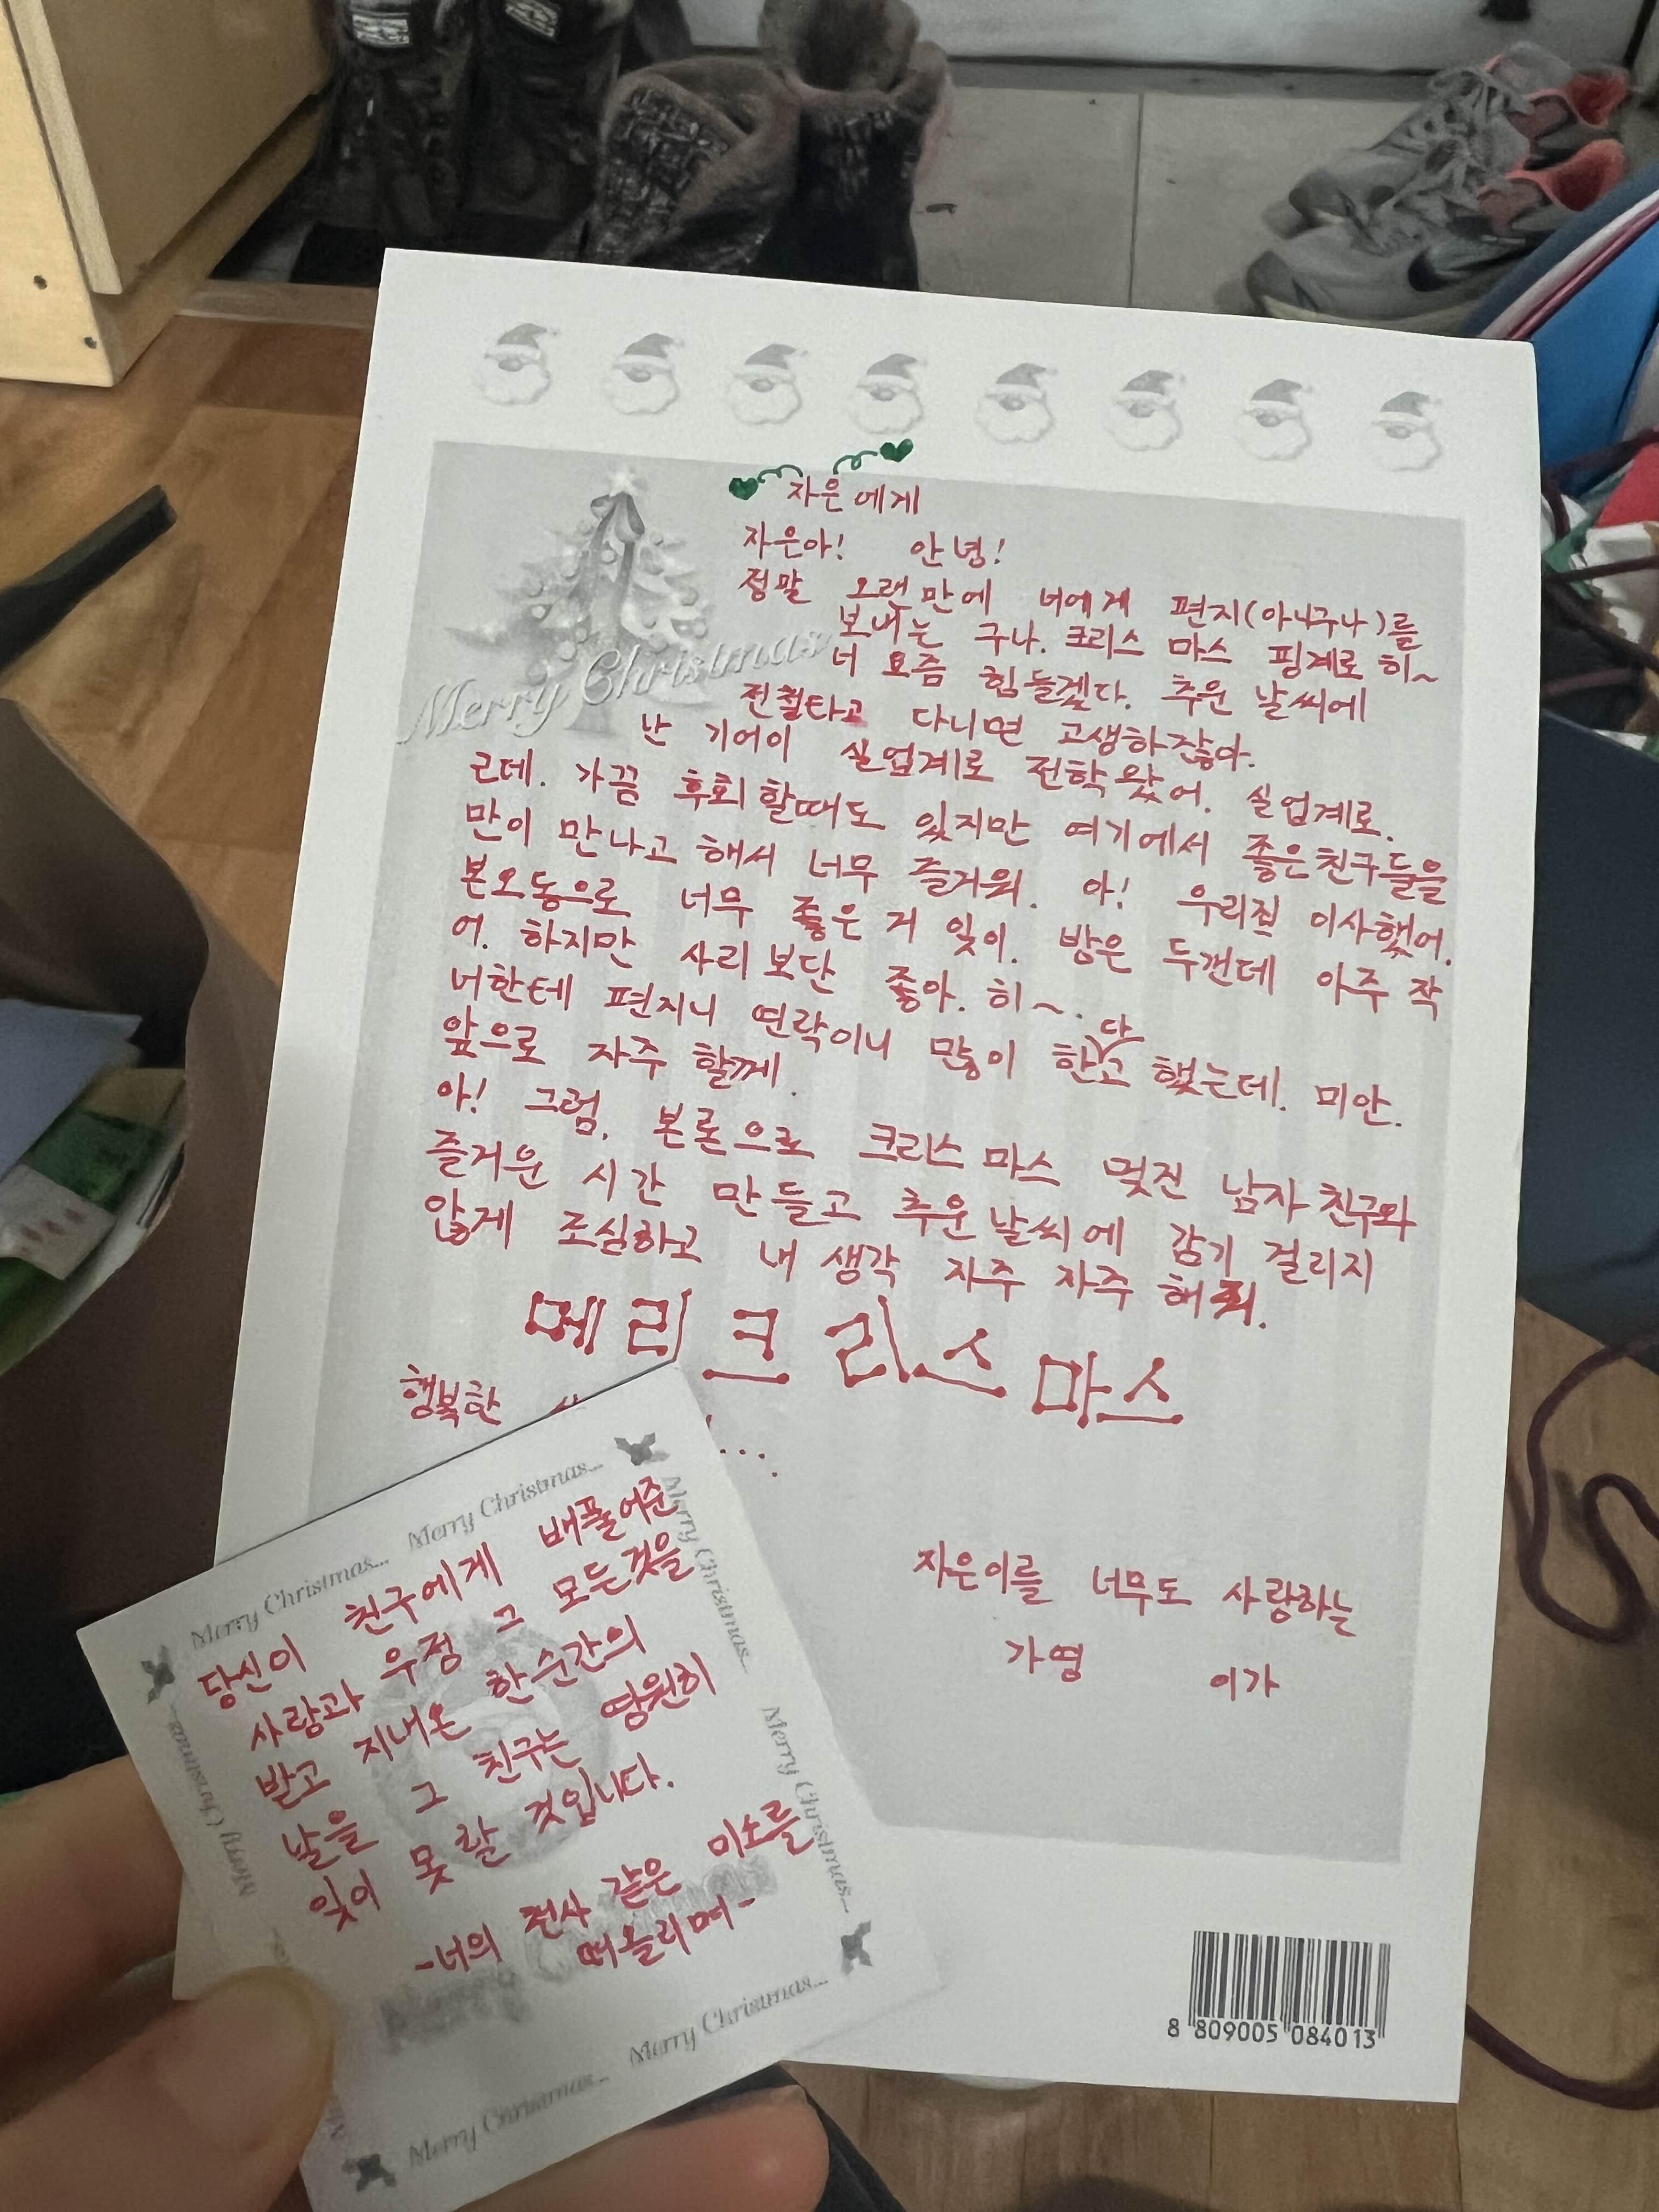 자은에게
자은아! 안녕!
정말 오랫만에 너에게 편지(아니구나)를
보내는 구나. 크리스 마스 핑계로 히~
너 요즘 힘들겠다. 추운 날씨에
전철타고 다니면 고생하잖아.
난 기어이 실업계로 전학왔어. 실업계로.
근데. 가끔 후회할때도 있지만 여기에서 좋은친구들을
만이 만나고 해서 너무 즐거워. 아! 우리집 이사했어.
본오동으로 너무 좋은 거 있이. 방은 두갠데 아주 작
어. 하지만 사리 보단 좋아. 히~.
너한테 편지니 연락이니 많이 한다고 했는데. 미안.
앞으로 자주 할께.
아! 그럼, 본론으로 크리스 마스 멋진 남자친구와
즐거운 시간 만들고 추운날씨에 감기 걸리지
않게 조심하고 내 생각 자주 자주 해줘.
메리크리스마스
행복한
자은이를 너무도 사랑하는
가영 이가
Merry Christmas
Merry Christmas... Merry Christmas... Merry Christmas...
당신이 친구에게 배풀어준
사랑과 우정 그 모든것을
받고 지내온 한순간의
날을 그 친구는 영원히
잊이 못 할 것입니다.
-너의 천사 같은 미소를
떠올리며-
Merry Christmas...
Merry Christmas...
Merry Christmas... Merry Christmas...
8 809005 084013